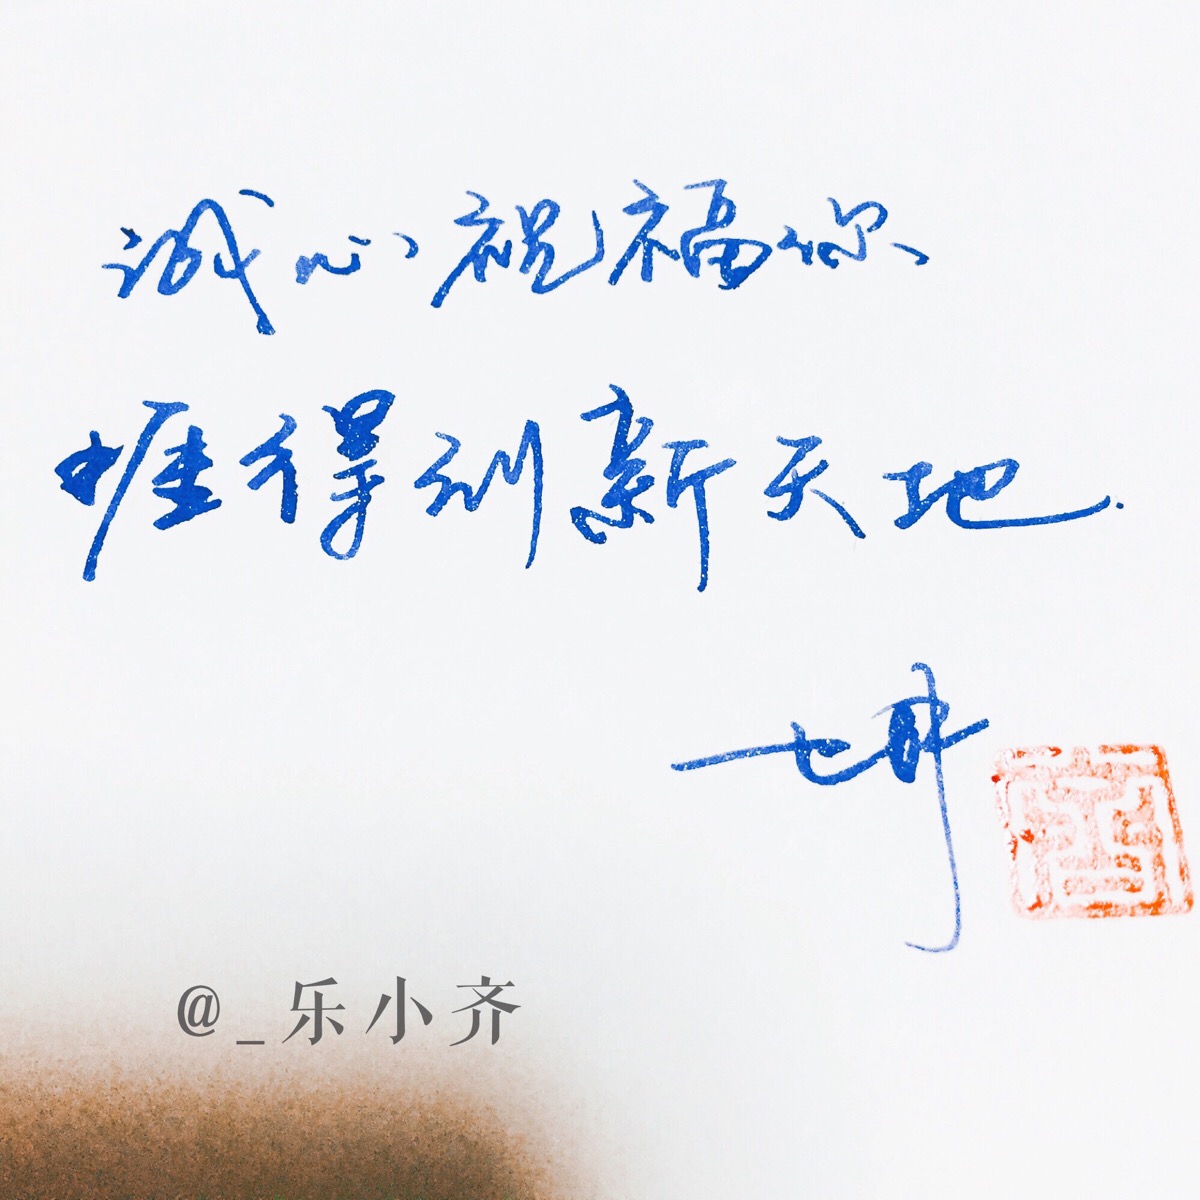 诚心祝福你
捱得到新天地.
@_乐小齐